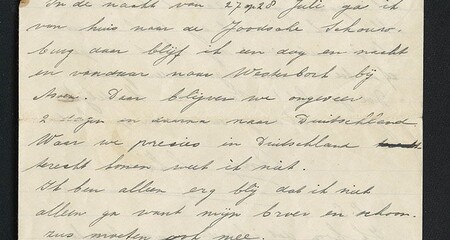 In de nacht van 27 op 28 Juli ga ik
van huis naar de Joodsche Schouw-
burg daar blijf ik een dag en nacht
en vandaar naar Westerbork bij
Assen. Daar blijven we ongeveer
2 dagen en daarna naar Duitschland
Waar we precies in Duitschland
terecht komen weet ik niet.
Ik ben alleen erg blij dat ik niet
alleen ga want mijn broer en schoon-
zus moeten ook mee.